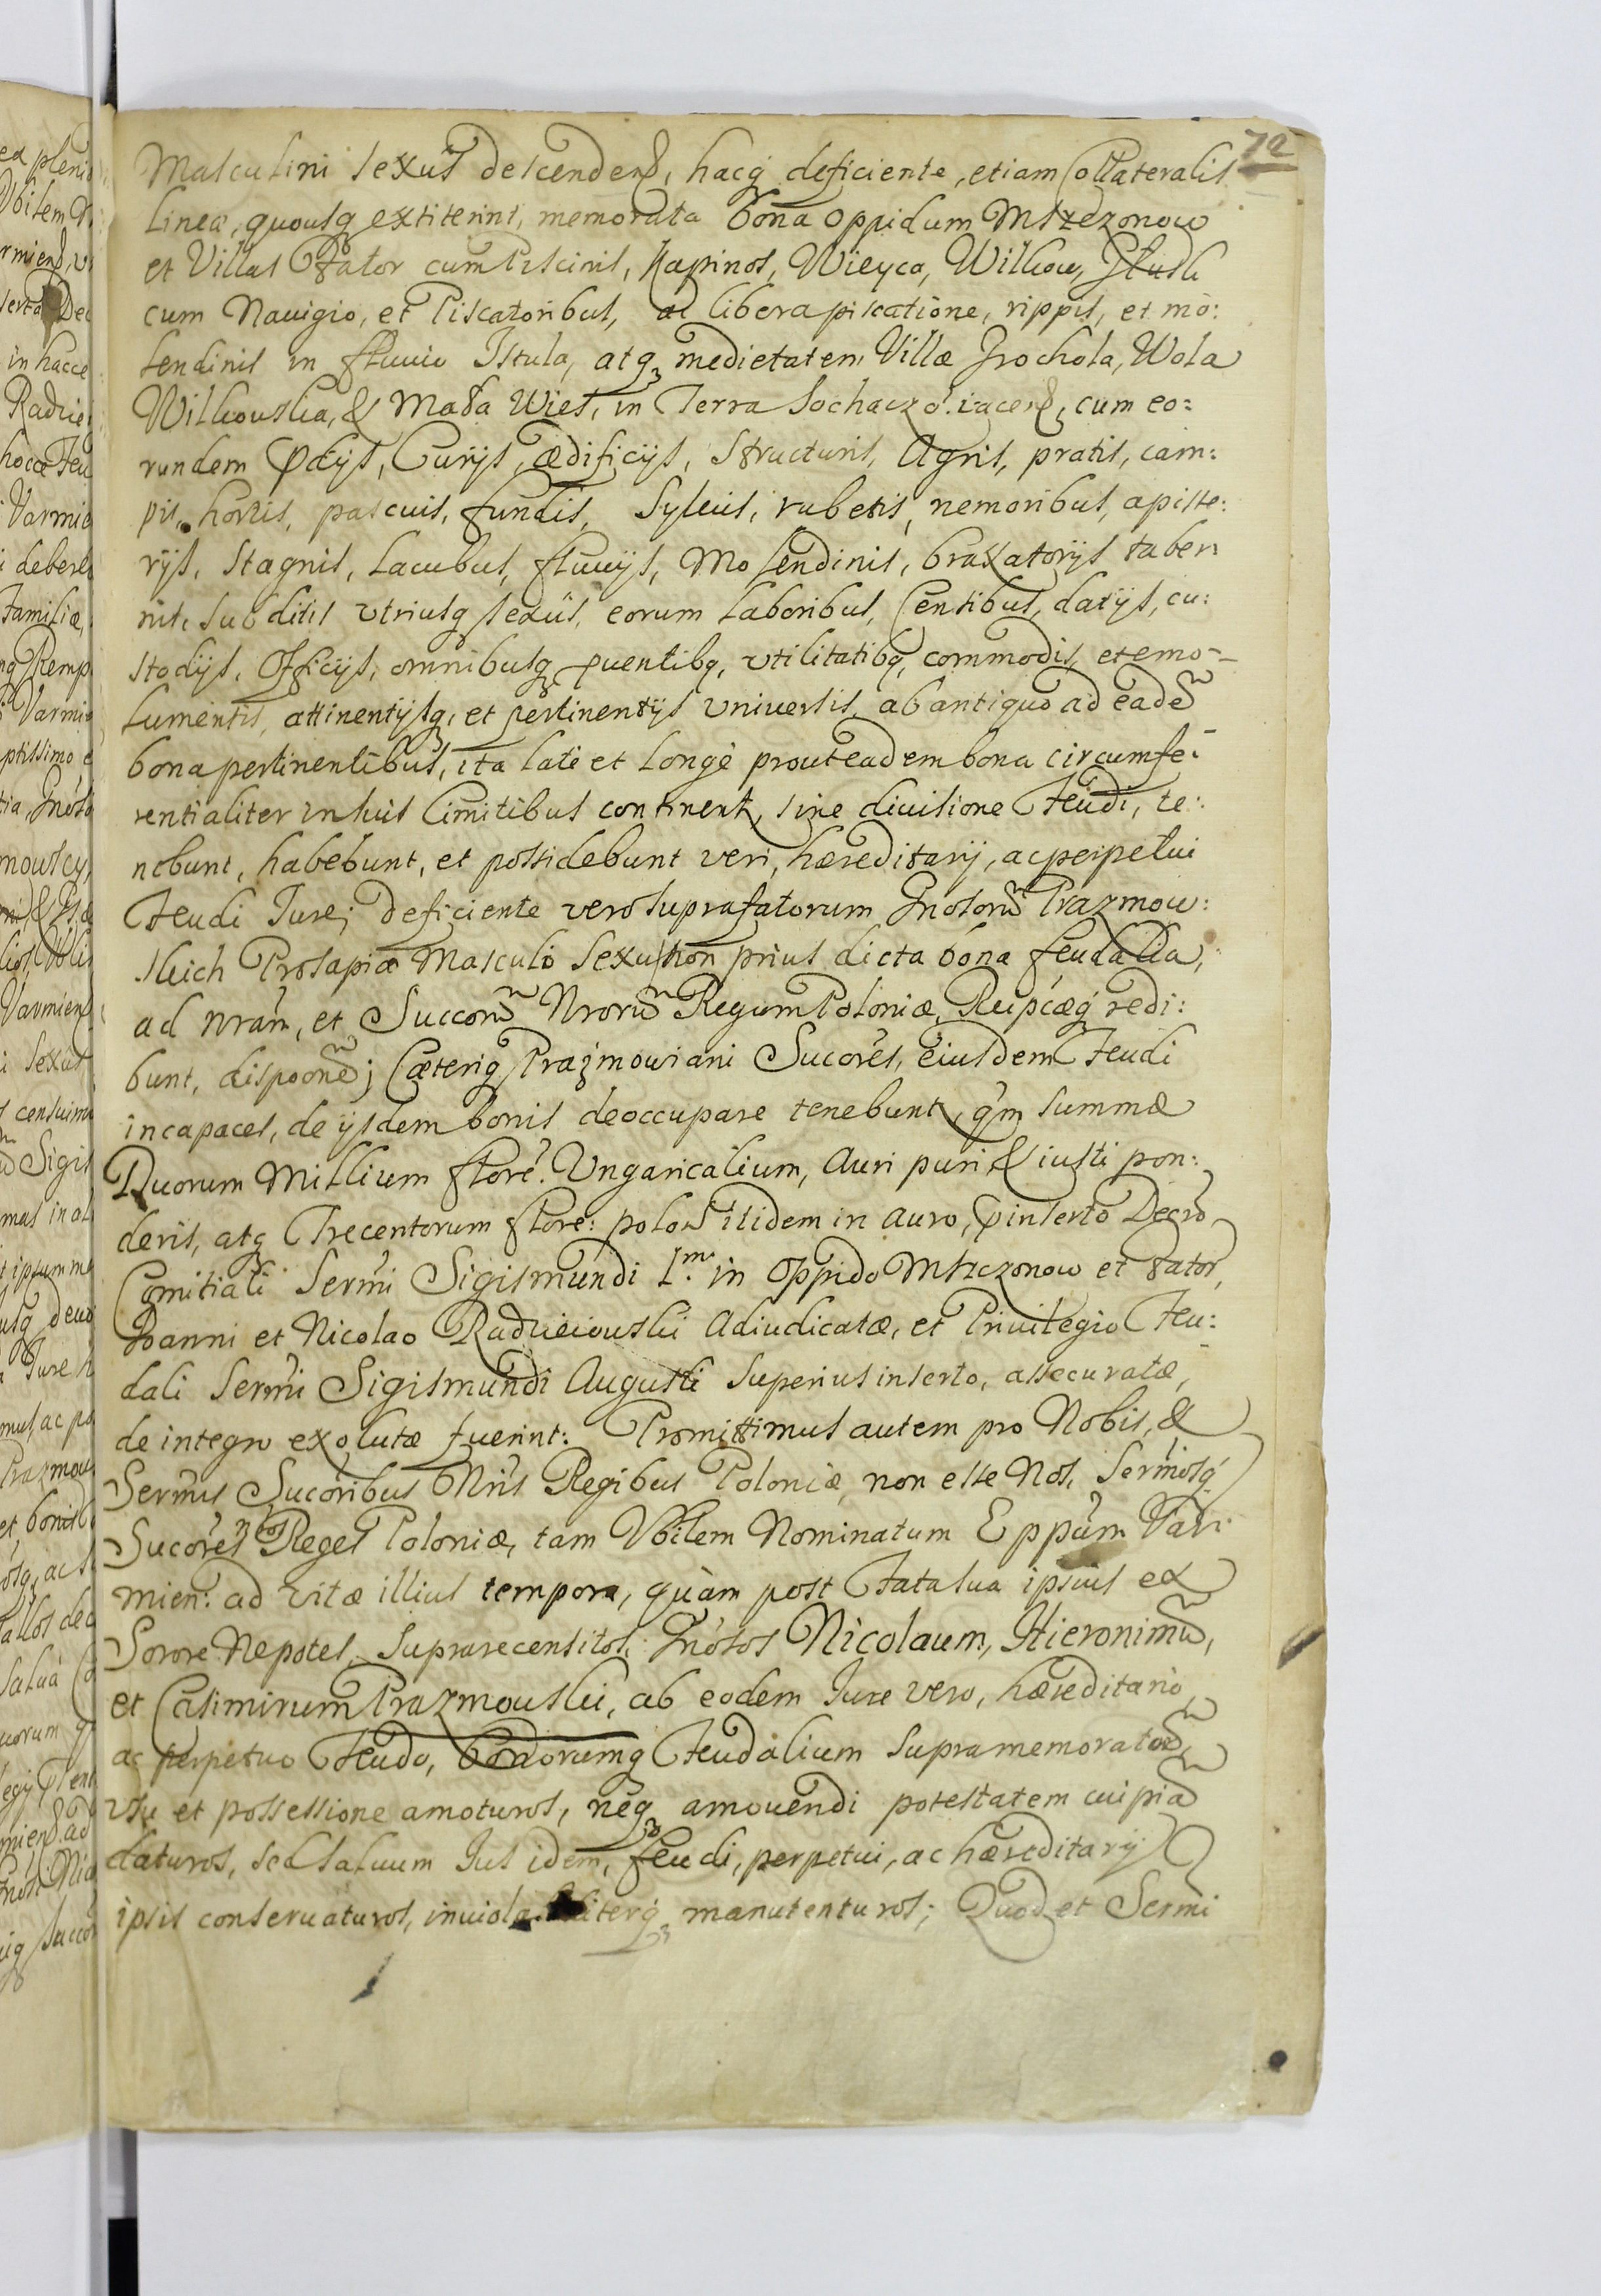 72
Masculini sexus descenden, hacq deficiente, etiam Collateralis
Linea, quousq extiterint, memorata bona Oppidum Mszczonow
et Villas Zator cum Piscinis, Kapinos, Wieyca, Wilkow,
cum Nauigio, et Piscatoribus, ac libera piscatione, rippis, et mo:
lendinis in fluuio Istula, atq medietatem Villæ Grochola, Wola
Wilkouska, & Mała Wies, in Terra Sochaczo: iacen, cum eo:
rundem Prædijs, Curijs, ædificijs, Structuris, Agris, pratis, cam:
pis, hortis, pascuis, fundis, Syluis, rubetis, nemoribus, apiste:
rijs, Stagnis, Lacubus, fluuijs, Molendinis, braxatorijs taber:
nis, Subditis vtriusq sexus, eorum Laboribus, Censibus, datijs, cu:
stodijs, Officijs, omnibusq prouentibq, vtilitatibq, commodis, et emo:
lumentis, attinentijsq, et pertinentijs vniuersis, ab antiquo ad eadē
bona pertinentibus, ita late et Longe prout eadem bona circumfe:
rentialiter in suis limitibus continent, sine diuisione Feudi, te:
nebunt, habebunt, et possidebunt veri, hæreditarij, ac perpetui
Feudi Iure; deficiente vero suprafatorum Gnosorū Prazmow:
skich Prosapiæ Masculo Sexu, non prius dicta bona feudalia,
ad nram, et Succorū Nrorū Regum Poloniæ, Reipcæq redi:
bunt, dispoonē; Cæteriq Prazmowiani Sucores, eiusdem Feudi
incapaces, de ijsdem bonis deoccupare tenebunt, qm summæ
Duorum Millium flore: Vngaricalium, Auri puri & iusti pon:
deris, atq Trecentorum flore: polon itidem in auro, pinserto Decro
Comitiali Sermi Sigismundi I.mi in Oppido Mszczonow et Zator,
Ioanni et Nicolao Radzieiouski Adiudicatæ, et Priuilegio Feu:
dali Sermi Sigismundi Augusti Superius inserto, assecuratæ,
de integro exolutæ fuerint: Promittimus autem pro Nobis, &
Sermis Sucoribus Nris Regibus Poloniæ, non esse Nos, Sermosq
Sucores nros Reges Poloniæ, tam Vbilem Nominatum Eppum Var:
mien: ad vitæ illius tempora, quàm post Fata sua ipsius ex
Sorore Nepotes, Suprarecensitos, Gnosos Nicolaum, Hieronimū,
et Casimirum Prazmouski, ab eodem Iure vero, hæreditario,
ac perpetuo Feudo, bonorumq Feudalium supramemoratorū,
vsu et possessione amoturos, neq amouendi potestatem cuipiā
daturos, sed saluum Ius idem, feudi, perpetui, ac hæreditarij
ipsis conseruaturos, inuiolabiliterq manutenturos; Quod et Sermi